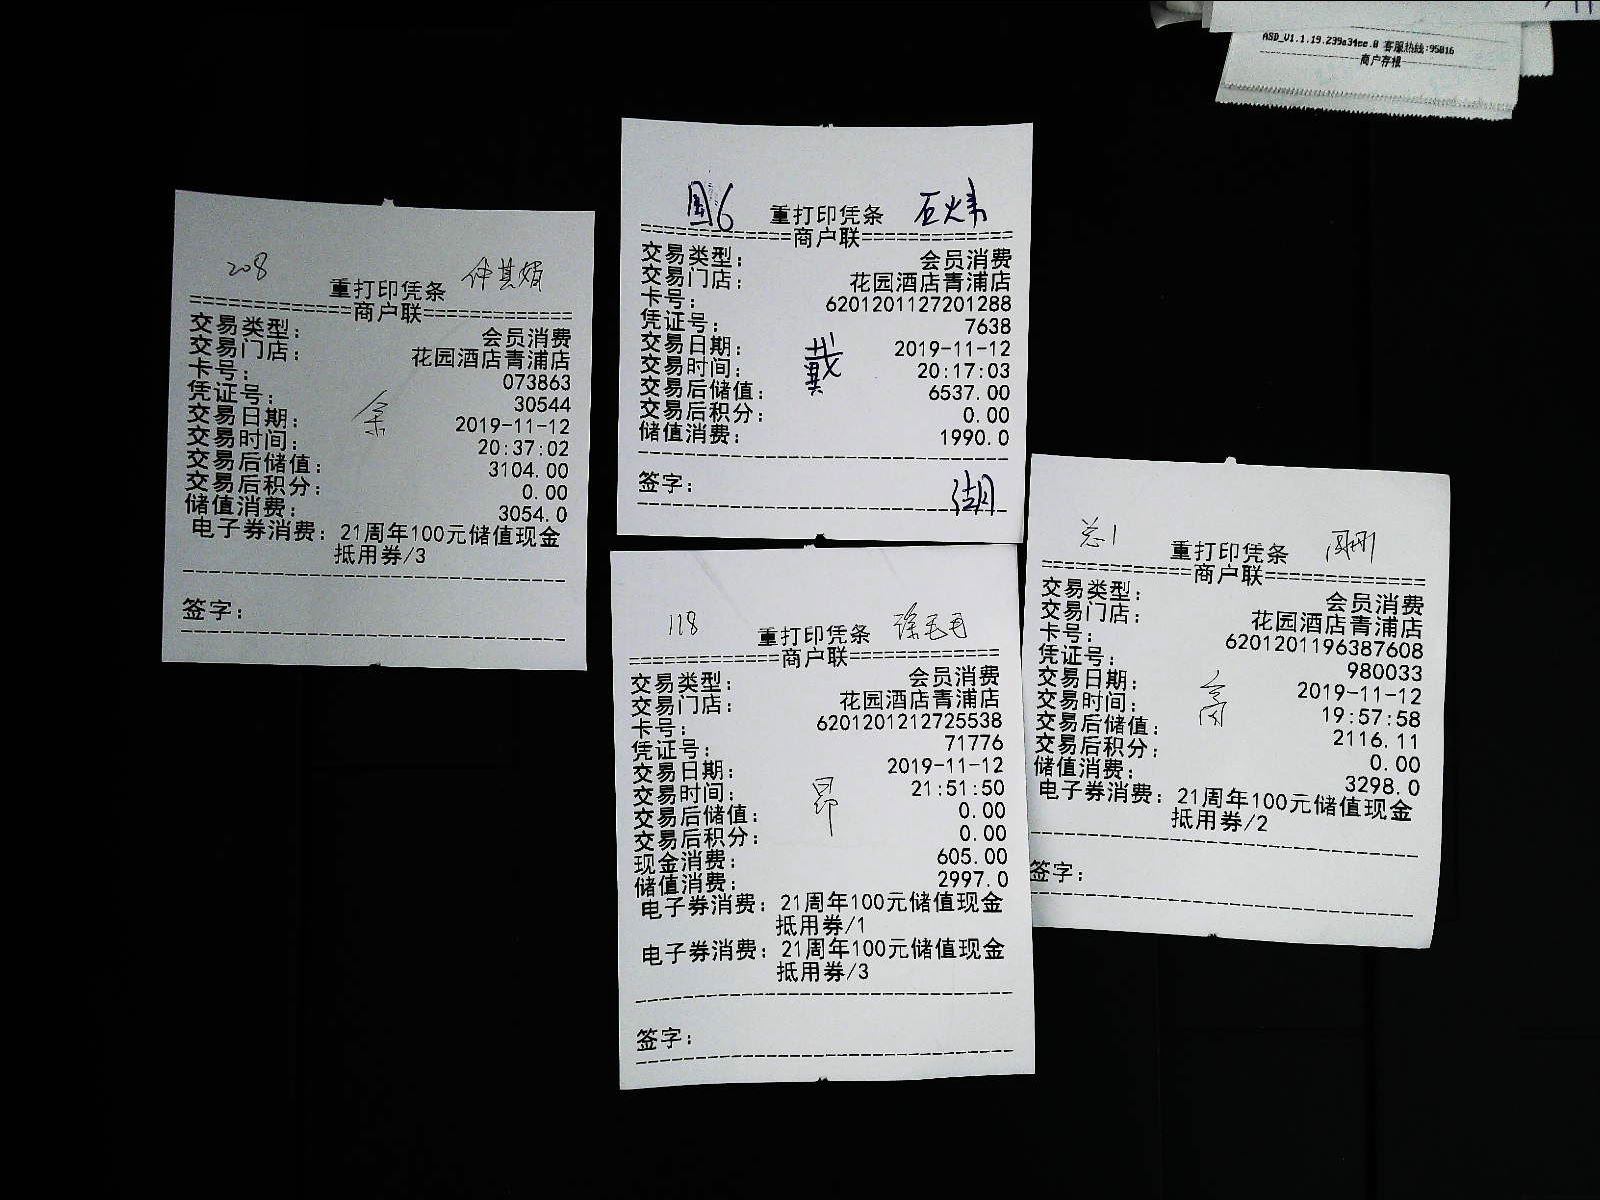 ASD_V1.1.19.239a34ee.0 客服热线:95016
商户存根
208 重打印凭条 仲其娟
商户联
交易类型: 会员消费
交易门店: 花园酒店青浦店
卡号: 073863
凭证号: 30544
交易日期: 2019-11-12
交易时间: 20:37:02
交易后储值: 3104.00
交易后积分: 0.00
储值消费: 3054.0
电子券消费: 21周年100元储值现金
抵用券/3
余
签字:
国6 重打印凭条 石火弟
商户联
交易类型: 会员消费
交易门店: 花园酒店青浦店
卡号: 6201201127201288
凭证号: 7638
交易日期: 2019-11-12
交易时间: 20:17:03
交易后储值: 6537.00
交易后积分: 0.00
储值消费: 1990.0
戴
签字: 湖
118 重打印凭条 徐毛毛
商户联
交易类型: 会员消费
交易门店: 花园酒店青浦店
卡号: 6201201212725538
凭证号: 71776
交易日期: 2019-11-12
交易时间: 21:51:50
交易后储值: 0.00
交易后积分: 0.00
现金消费: 605.00
储值消费: 2997.0
电子券消费: 21周年100元储值现金
抵用券/1
电子券消费: 21周年100元储值现金
抵用券/3
昂
签字:
总1 重打印凭条
商户联
交易类型: 会员消费
交易门店: 花园酒店青浦店
卡号: 6201201196387608
凭证号: 980033
交易日期: 2019-11-12
交易时间: 19:57:58
交易后储值: 2116.11
交易后积分: 0.00
储值消费: 3298.0
电子券消费: 21周年100元储值现金
抵用券/2
签字: